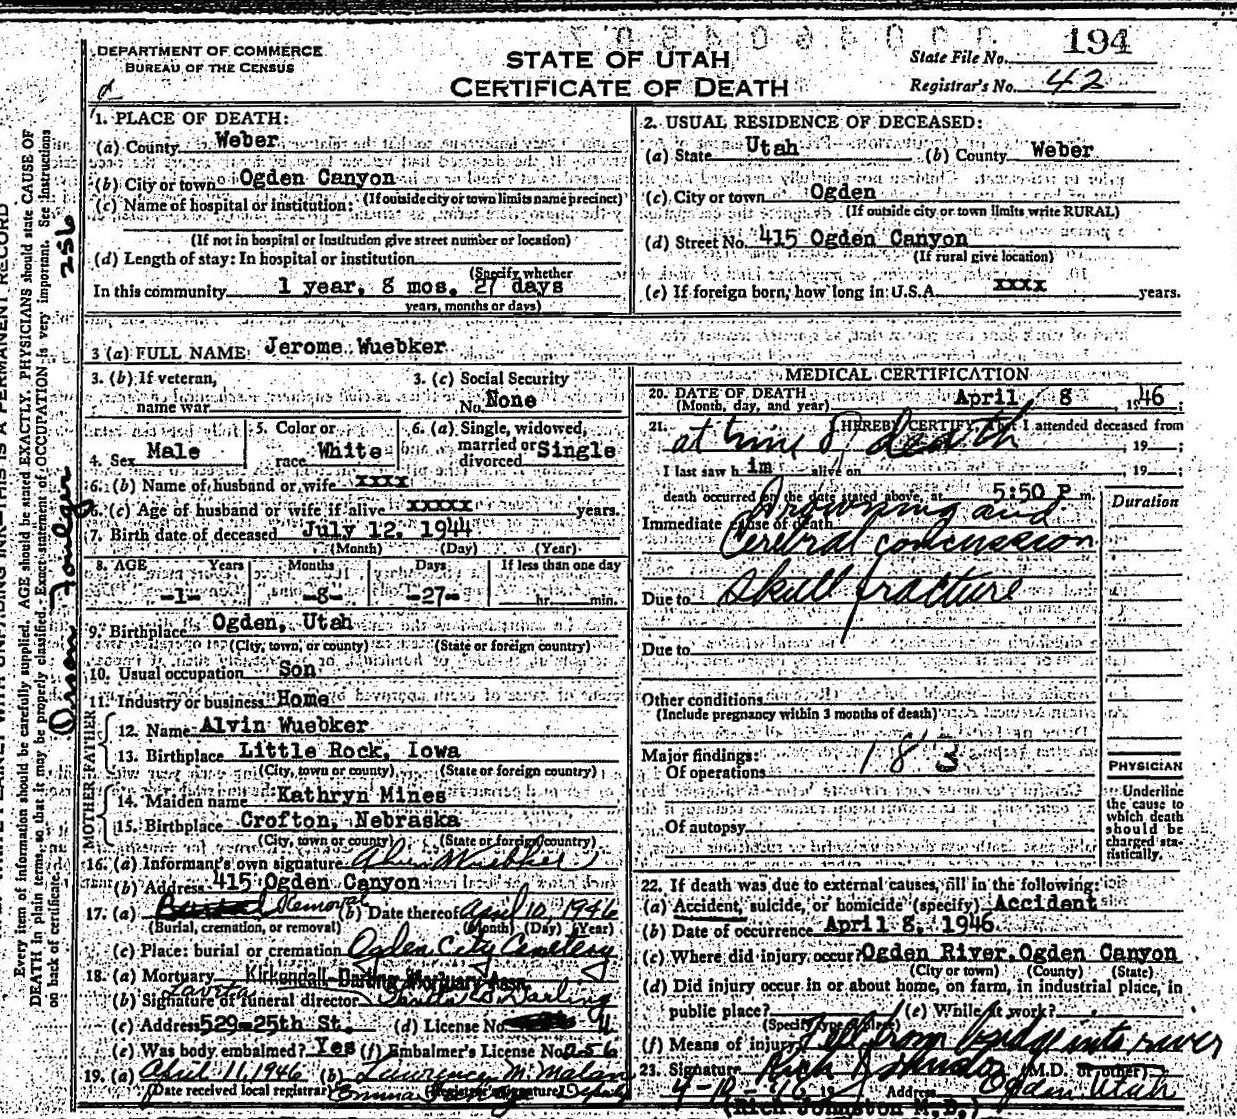 DEPARTMENT OF COMMERCE
BUREAU OF THE CENSUS
STATE OF UTAH
CERTIFICATE OF DEATH
State File No. 194
Registrar's No. 42
1. PLACE OF DEATH:
(a) County Weber
(b) City or town Ogden Canyon
(If outside city or town limits name precinct)
(c) Name of hospital or institution:
(If not in hospital or institution give street number or location)
(d) Length of stay: In hospital or institution
(Specify whether
In this community 1 year, 8 mos. 27 days
years, months or days)
2. USUAL RESIDENCE OF DECEASED:
(a) State Utah (b) County Weber
(c) City or town Ogden
(If outside city or town limits write RURAL)
(d) Street No. 415 Ogden Canyon
(If rural give location)
(e) If foreign born, how long in U.S.A. xxxx years.
3 (a) FULL NAME: Jerome Wuebker
3. (b) If veteran,
name war
3. (c) Social Security
No. None
4. Sex Male
5. Color or
race White
6. (a) Single, widowed,
married or
divorced Single
6. (b) Name of husband or wife xxxx
6. (c) Age of husband or wife if alive xxxxx years.
7. Birth date of deceased July 12, 1944
(Month) (Day) (Year)
8. AGE Years Months Days If less than one day
-1- -8- -27- hr. min.
9. Birthplace Ogden, Utah
(City, town, or county) (State or foreign country)
10. Usual occupation Son
11. Industry or business Home
FATHER
12. Name Alvin Wuebker
13. Birthplace Little Rock, Iowa
(City, town or county) (State or foreign country)
MOTHER
14. Maiden name Kathryn Mines
15. Birthplace Crofton, Nebraska
(City, town or county) (State or foreign country)
16. (a) Informant's own signature Alvin Wuebker
(b) Address 415 Ogden Canyon
17. (a) Burial Removal (b) Date thereof April 10, 1946
(Burial, cremation, or removal) (Month) (Day) (Year)
(c) Place: burial or cremation Ogden City Cemetery
18. (a) Mortuary Kirkendall Darling Mortuary Assn.
(b) Signature of funeral director Lavita B. Darling
(c) Address 529-25th St. (d) License No. 4
(e) Was body embalmed? Yes (f) Embalmer's License No. 256
19. (a) April 11, 1946 (b) Lawrence M. Malan
(Date received local registrar) (Registrar's signature) Deputy
MEDICAL CERTIFICATION
20. DATE OF DEATH
(Month, day, and year) April 8 1946;
21. I HEREBY CERTIFY, That I attended deceased from
at time of death 19 ;
I last saw h im alive on 19 ;
death occurred on the date stated above, at 5:50 P m.
Duration
Immediate cause of death Drowning and
Cerebral concussion
Due to skull fracture
Due to
Other conditions
(Include pregnancy within 3 months of death)
Major findings:
Of operations 183
Of autopsy
PHYSICIAN
Underline
the cause to
which death
should be
charged sta-
tistically.
22. If death was due to external causes, fill in the following:
(a) Accident, suicide, or homicide (specify) Accident
(b) Date of occurrence April 8, 1946
(c) Where did injury occur? Ogden River, Ogden Canyon
(City or town) (County) (State)
(d) Did injury occur in or about home, on farm, in industrial place, in
public place? (e) While at work?
(Specify type of place)
(f) Means of injury Fell from bridge into river
23. Signature Rich Johnston (M.D. or other)
4-12-46 Address Ogden Utah
(Rich Johnston M.D.)
THIS IS A PERMANENT RECORD
Every item of information should be carefully supplied. AGE should be stated EXACTLY. PHYSICIANS should state CAUSE OF
DEATH in plain terms, so that it may be properly classified. Exact statement of OCCUPATION is very important. See instructions
on back of certificate.
Orson Foulger 256